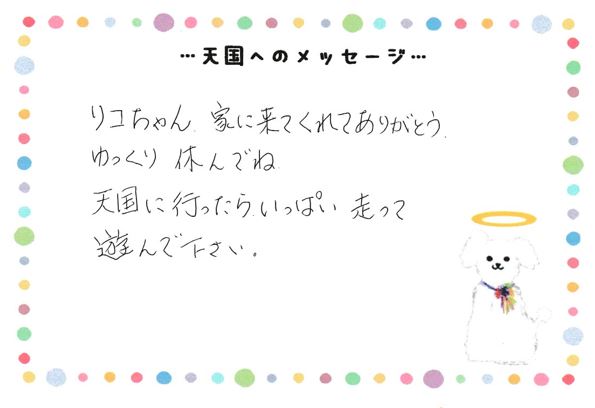 …天国へのメッセージ…
リコちゃん 家に来てくれてありがとう
ゆっくり 休んでね
天国に行ったら いっぱい 走って
遊んで下さい。